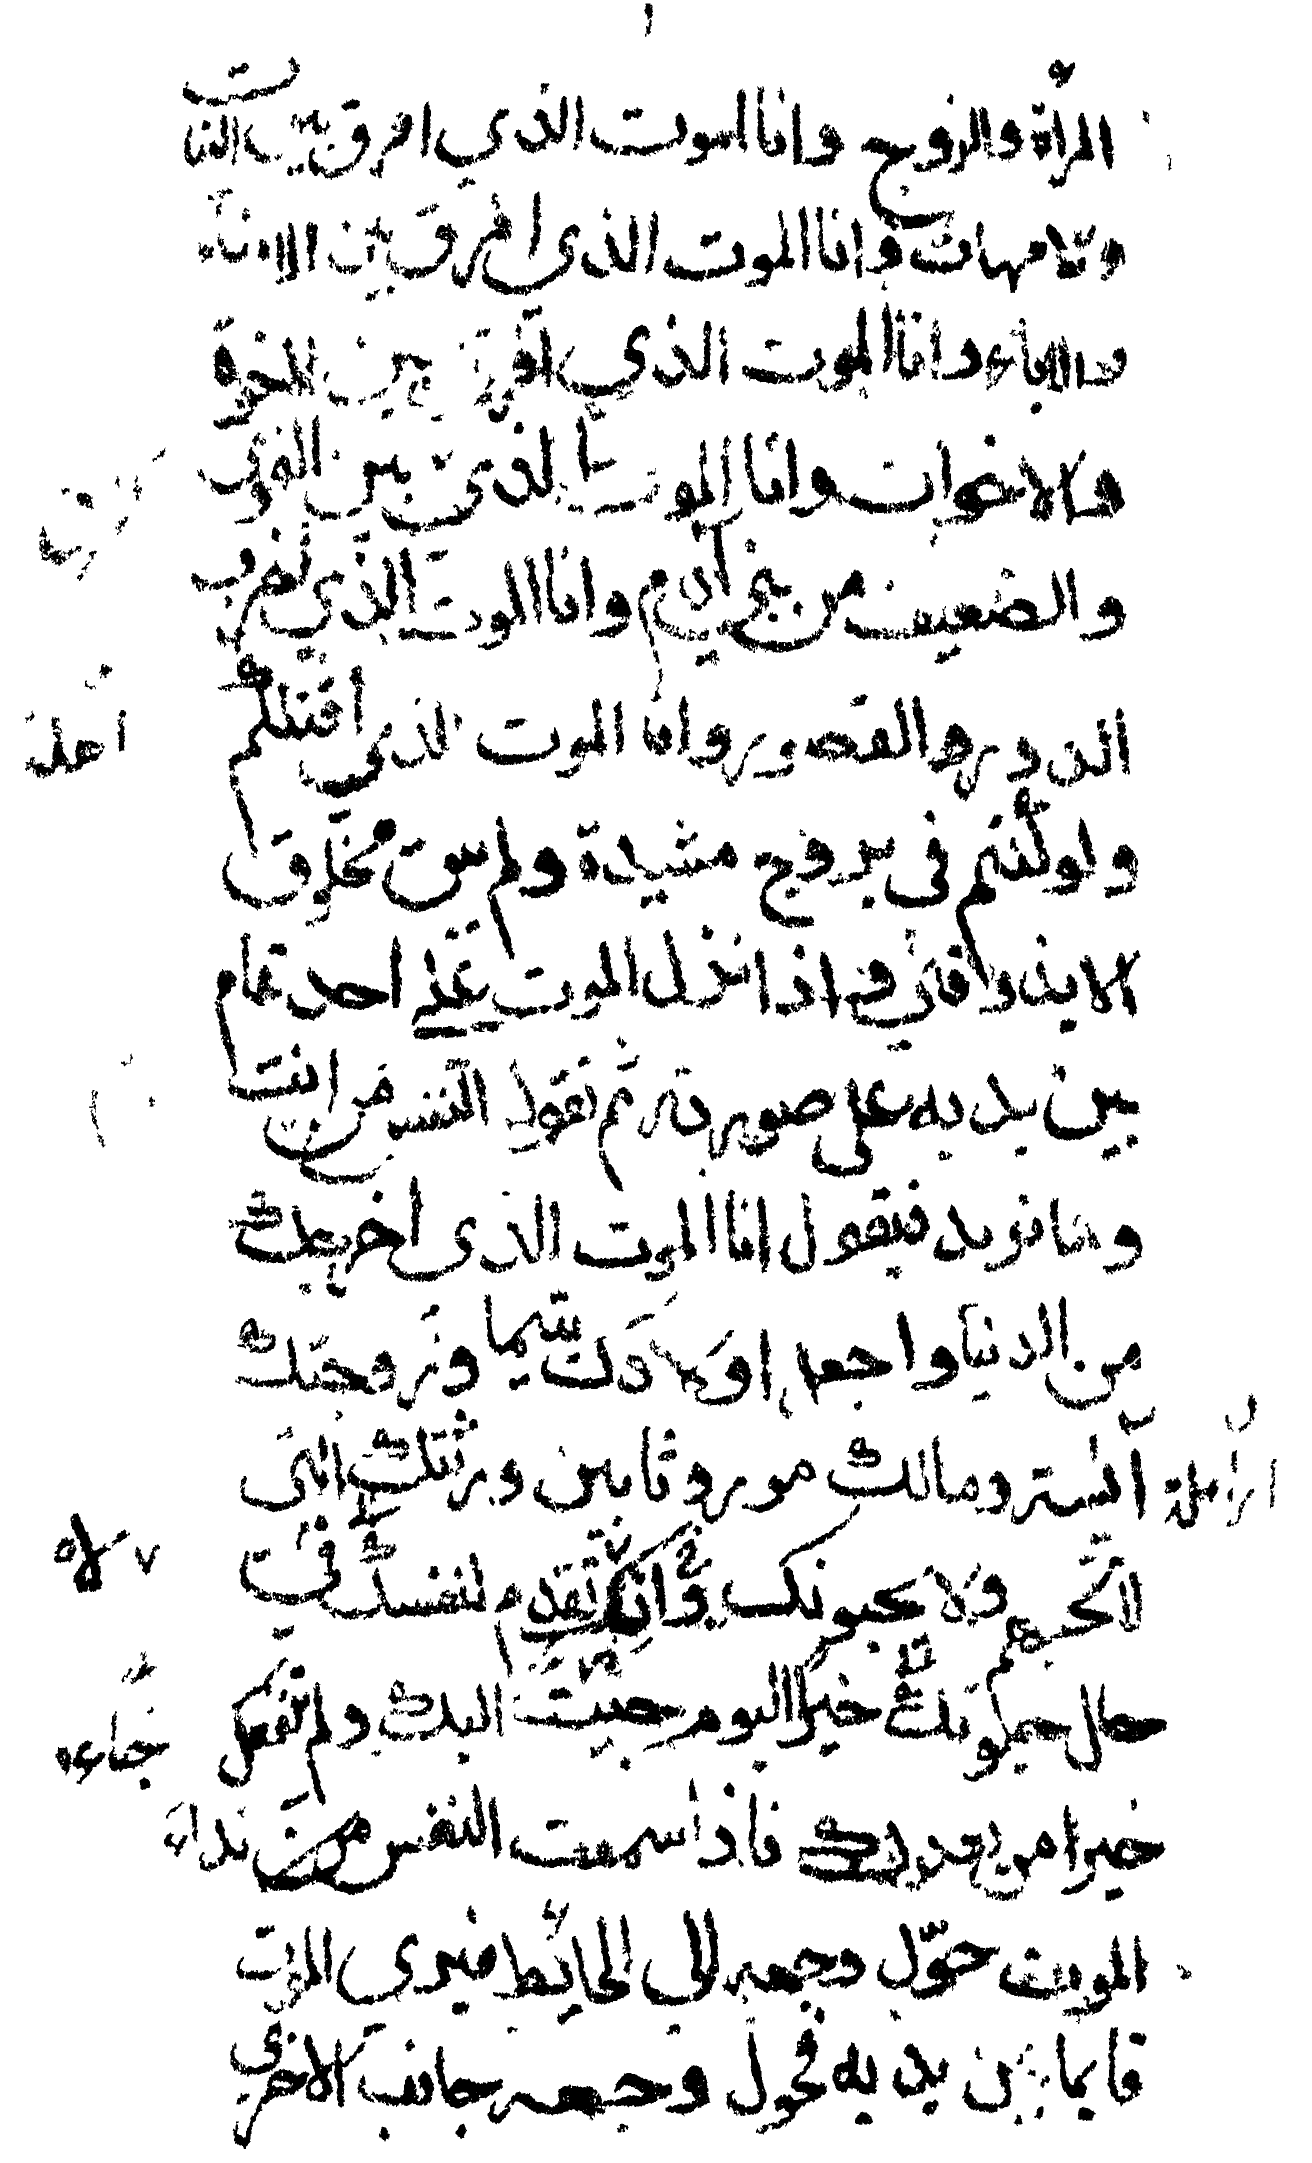 المرأة والزوج وانا الموت الذي افرق بين البنات
والامهات وانا الموت الذي افرق بين الابناء
والاباء وانا الموت الذي افرق بين الاخوة
والاخوان وانا الموت الذي بين القوي
والضعيف من بني آدم وانا الموت الذي تخرب
الدور والقصور وانا الموت الذي اقتلكم
ولو كنتم في بروج مشيدة ولم يبق مخلوق
الا يذوقني فاذا نزل الموت على احد قام
بين يديه على صورته ثم تقول النفس من انت
وما تريد فيقول انا الموت الذي اخرجك
من الدنيا واجعل اولادك يتيما وزوجتك
ارملة ومالك موروثا بين ورثتك التي
لا تحبهم ولا يحبونك وانك لم تقدم لنفسك في
حال حيوتك خيرا اليوم جيت اليك ولم تفعل
خيرا من بعد ذلك فاذا سمعت النفس من نداء
الموت حوّل وجهه الى الحائط فيرى الموت
قايما بين يديه فحول وجهه جانب الاخرى